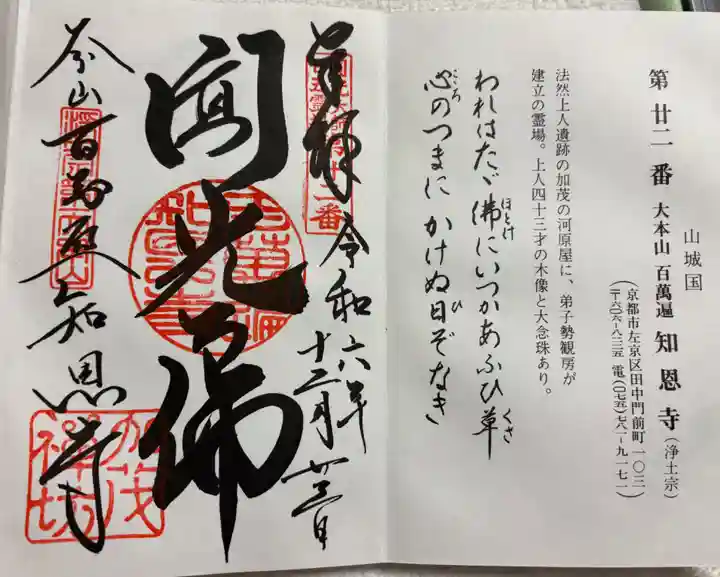 山城国
第廿二番 大本山 百萬遍 知恩寺(浄土宗)
(京都市左京区田中門前町一〇三
〒六〇六-八二二五 電(〇七五)七八一-九一七一)
法然上人遺跡の加茂の河原屋に、弟子勢観房が
建立の霊場。上人四十三才の木像と大念珠あり。
われはたゞ佛にいつかあふひ草
ほとけ
くさ
心のつまに かけぬ日ぞなき
こころ
ひ
奉拝 令和六年
十二月廿三日
圓光大佛
本山百萬遍知恩寺
加茂
禅坊